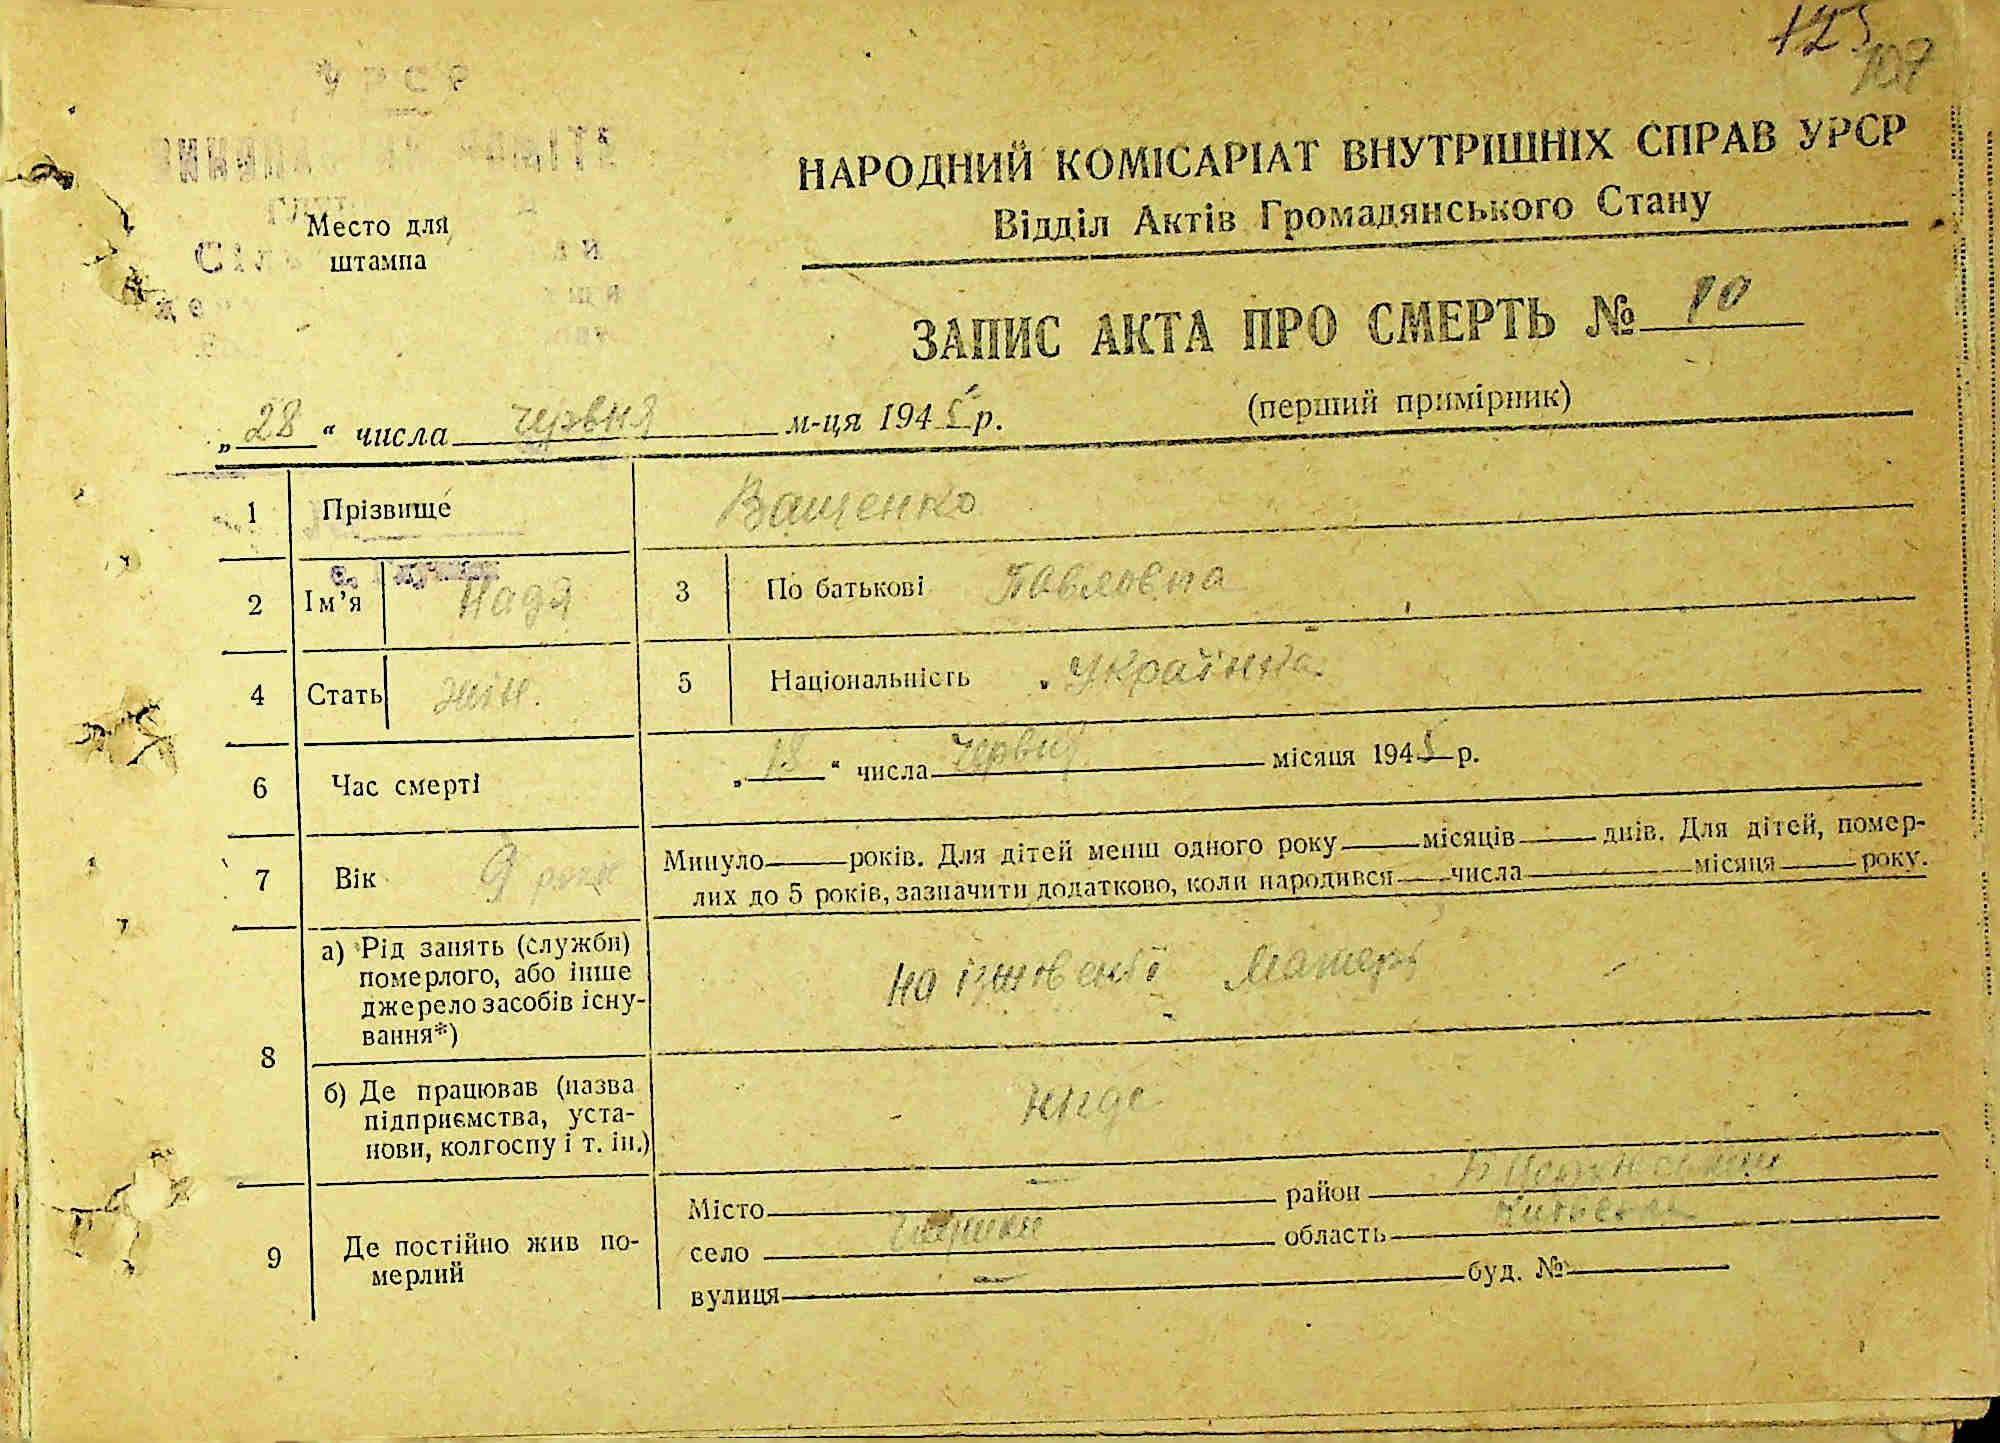 125
107
УРСР
Место для
штампа
НАРОДНИЙ КОМІСАРІАТ ВНУТРІШНІХ СПРАВ УРСР
Відділ Актів Громадянського Стану
ЗАПИС АКТА ПРО СМЕРТЬ № 10
(перший примірник)
„28“ числа червня м-ця 1945 р.
1 Прізвище Ващенко
2 Ім’я Надя 3 По батькові Павловна
4 Стать жін. 5 Національність Українка
6 Час смерті „18“ числа червня місяця 1945 р.
7 Вік 9 років Минуло років. Для дітей менш одного року місяців днів. Для дітей, помер-
лих до 5 років, зазначити додатково, коли народився числа місяця року.
8 а) Рід занять (служби)
померлого, або інше
джерело засобів існу-
вання*)
на іждивенії матері
б) Де працював (назва
підприємства, уста-
нови, колгоспу і т. ін.)
нигде
9 Де постійно жив по-
мерлий
Місто — район
село область
вулиця — буд. №